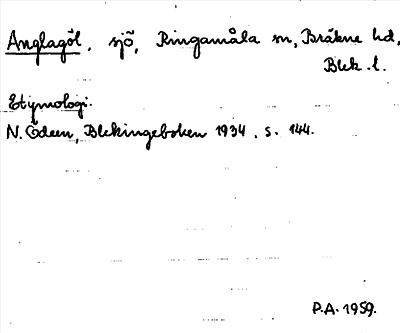 Anglagöl, sjö, Ringamåla sn, Bräkne hd,
Blek. l.
Etymologi.
N. Ödeen, Blekingeboken 1934, s. 144.
P.A. 1959.